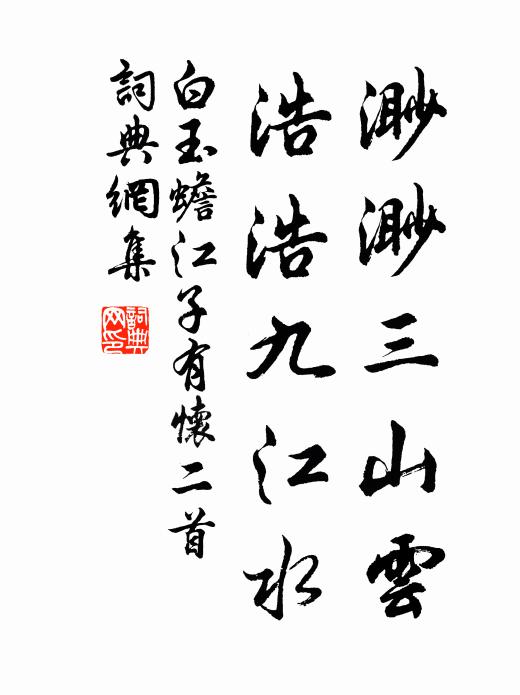 渺渺三山雲
浩浩九江水
白玉蟾江子有懷二首
詞典網集
詞典网印